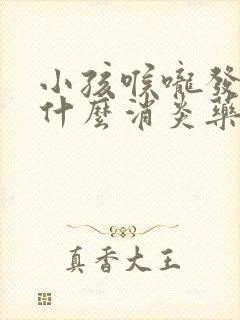 小孩喉嚨發
什麼消炎藥
真香大王